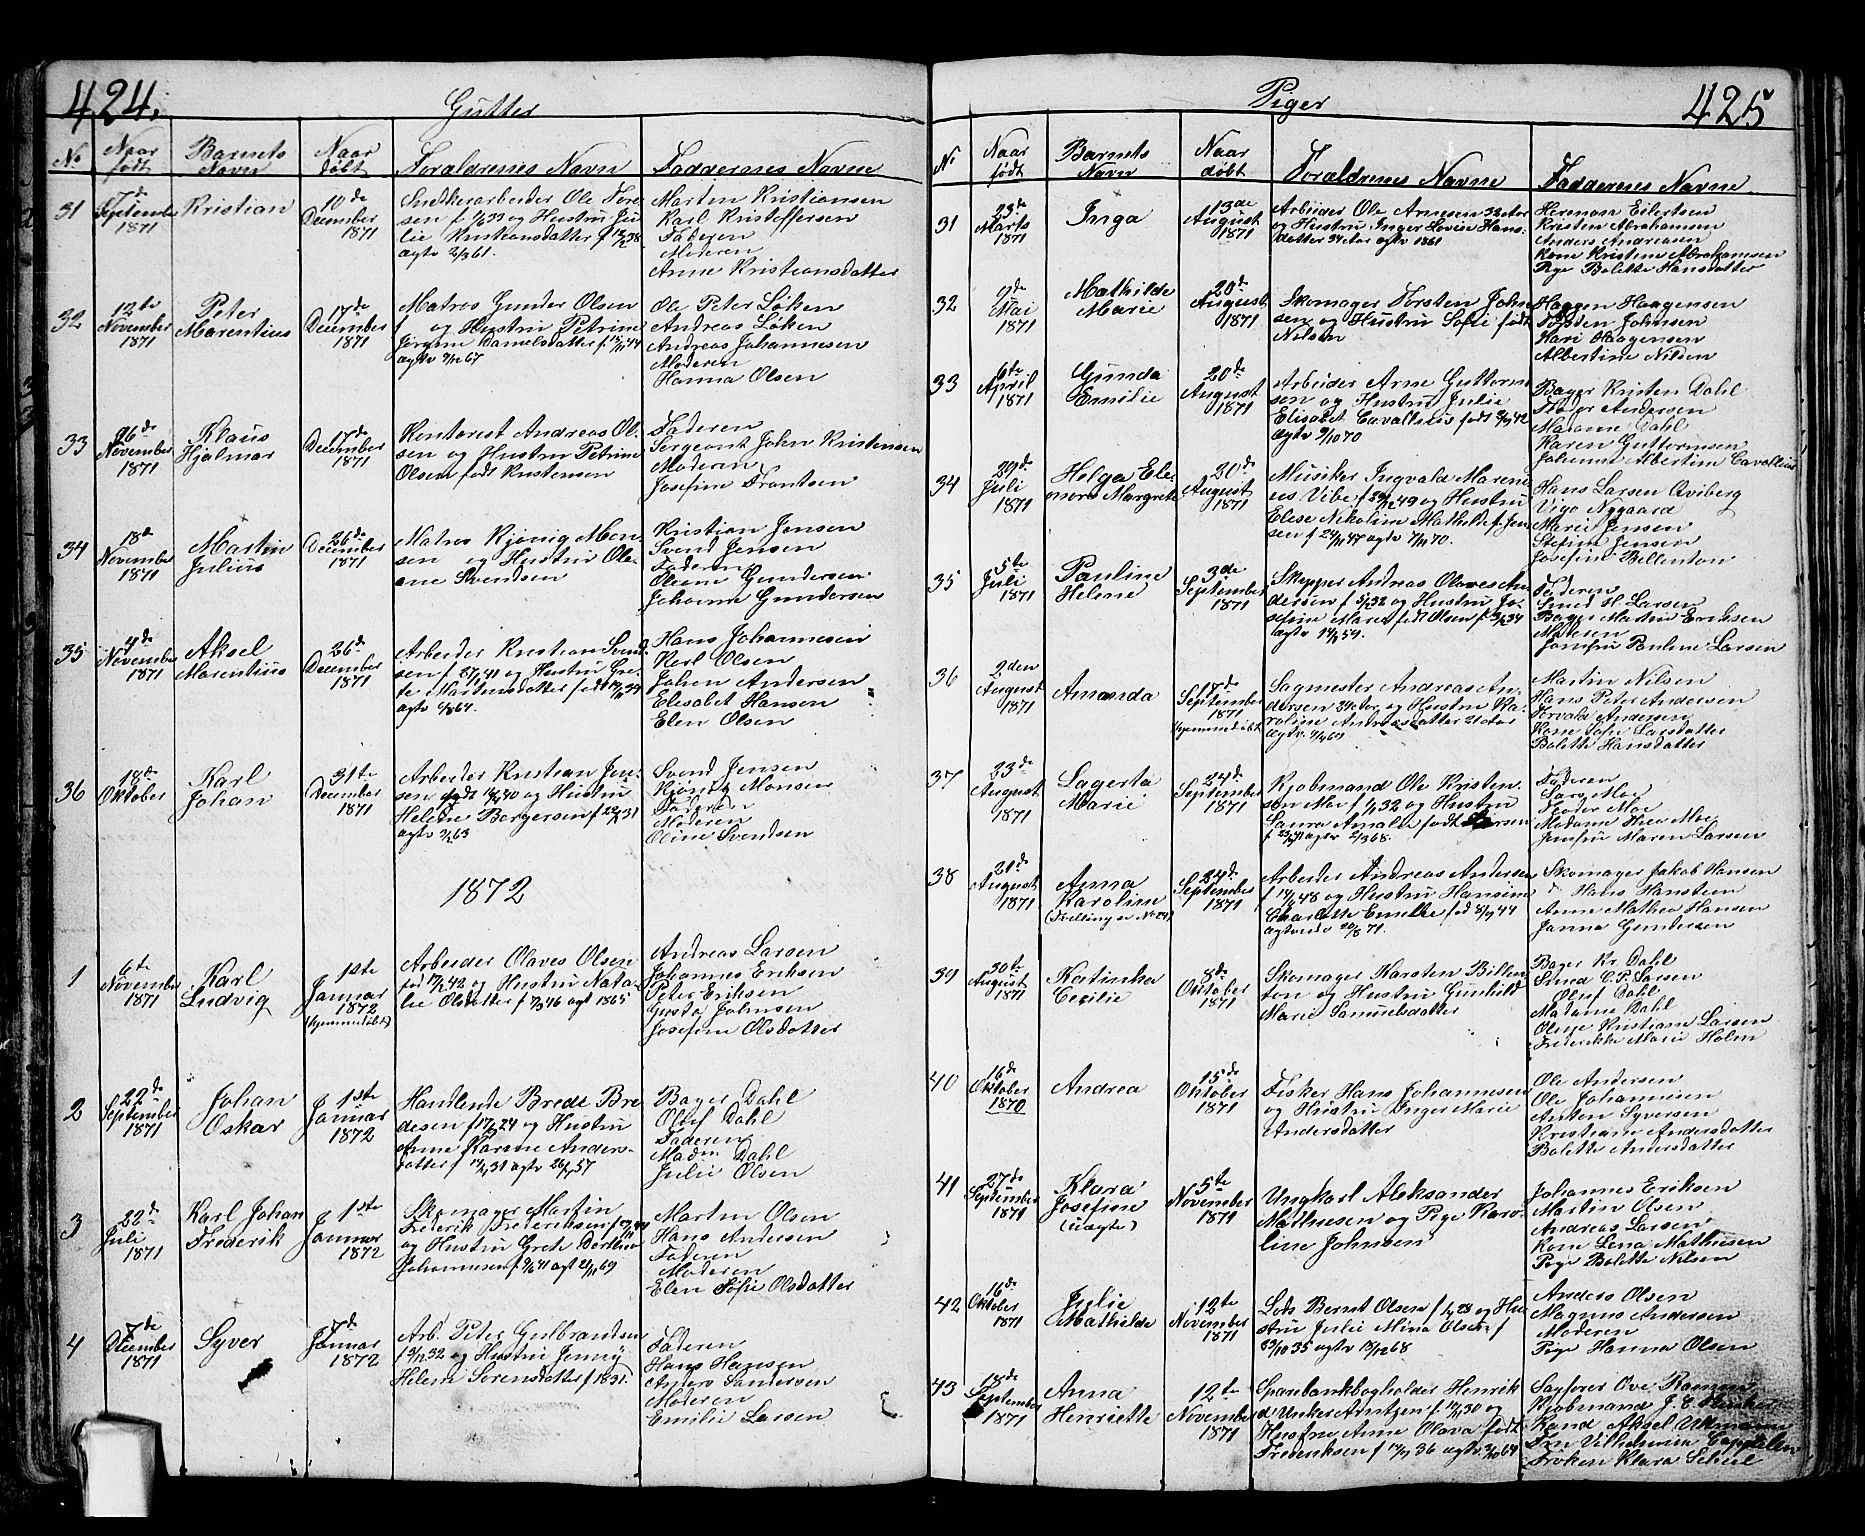 424.
Gutter
No
Naar født
Barnets Navn
Naar døbt
Forældrenes Navn
Faddernes Navne
31
7de September 1871
Kristian
10de December 1871
Snedkerarbeider Ole Tore-
sen f og Hustru Ju-
lie Kristiansdatter f
ægtv 2/3 61.
Martin Kristiansen
Karl Kristoffersen
Faderen
Moderen
Anne Kristiansdatter
32
12te November 1871
Peter Marentius
17de December 1871
Matros Gunder Olsen
f og Hustru Petrine
Jørgine Danielsdatter f
ægtv 67
Ole Peter Løken
Andreas Løken
Andreas Johannesen
Moderen
Hanna Olsen
33
26de November 1871
Klaus Hjalmar
17de December 1871
Kontorist Andreas Ol-
sen og Hustru Petrine
Olsen født Kristensen
Faderen
Sergeant John Kristensen
Moderen
Josefine Frantsen
34
18de November 1871
Martin Julius
26de December 1871
Matros Kjønig Mon-
sen og Hustru Ole-
ane Svendsen
Kristian Jensen
Svend Jensen
Faderen
Oliane Gundersen
Johanne Gundersen
35
4de November 1871
Aksel Marentius
26de December 1871
Arbeider Kristian Svend-
sen f og Hustru Gre-
te Martinsdatter født
ægtv 64.
Hans Johannesen
Karl Olsen
Johan Andersen
Elisabet Hansen
Elen Olsen
36
18de Oktober
Karl Johan
31te December 1871
Arbeider Kristian Jen-
sen født og Hustru
Helene Bergersen f
ægtv 63
Svend Jensen
Kjønig Monsen
Faderen
Moderen
Oline Svendsen
1872
1
6te November 1871
Karl Ludvig
1ste Januar 1872
(hjemmedøbt)
Arbeider Olaves Olsen
fød og Hustru Nata-
lie Olsdatter f ægt 1865
Andreas Larsen
Johannes Eriksen
Peter Eriksen
Gusta Johnsen
Josefine Olsdatter
2
22de September 1871
Johan Oskar
1ste Januar 1872
Handlende Brede Bre
desen f og Hustru
Anne Karine Anders-
datter f ægtv 57
Bager Dahl
Oluf Dahl
Faderen
Madm Dahl
Julie Olsen
3
22de Juli 1871
Karl Johan Frederik
1ste Januar 1872
Skomager Martin
Frederik Frederiksen f
og Hustru Grethe
Johannesen f ægt 69
Martin Olsen
Hans Andersen
Faderen
Moderen
Elen Sofie Olsdatter
4
7de December 1871
Syver
7de Januar 1872
Arb. Peter Gulbrandsen
f 13/12 32 og Hustru Jenny
Helene Sørensdatter f 1831.
Faderen
Hans Hansen
Anders Sandersen
Moderen
Emilie Larsen
Piger
425
No
Naar født
Barnets Navn
Naar døbt
Forældrenes Navne
Faddernes Navne
31
23de Marts 1871
Inga
13de August 1871
Arbeider Ole Arnesen 32 Aar
og Hustru Inger Lovise Hans-
datter 34 Aar ægtv 1861
Herman Eilertsen
Kristen Abrahamsen
Anders Andreasen
Kone Kristine Abrahamsen
Pige Bolette Hansdatter
32
9de Mai 1871
Mathilde Marie
20de August 1871
Skomager Torsten John-
sen og Hustru Sofie født
Nilsen
Haagen Haagensen
Torsten Johnsen
Kari Haagensen
Albertine Nilsen
33
6te April 1871
Gunda Emilie
20de August 1871
Arbeider Arne Guttorm-
sen og Hustru Julie
Elisabet Cavallius født
ægtv 9/10 70
Bager Kristen Dahl
Teodor Andersen
Madame Dahl
Karen Guttormsen
Johanne Albertine Cavallius
34
29de Juli 1871
Helga Ele-
nore Margrete
20de August 1871
Musiker Ingvald Mareni-
us Vibe f og Hustru
Elise Nikoline Mathilde f. Jen-
sen f ægtv 7/11 70.
Hans Larsen Qviberg
Vigo Nygaard
Marie Jensen
Stefine Jensen
Josefine Billenton
35
5te Juli 1871
Pauline Helene
3de September 1871
Skipper Andreas Olaves An-
dersen f og Hustru Jo-
sefine Maren født Olsen f
ægtv 59.
Faderen
Smed H. Larsen
Bager Martin Eriksen
Moderen
Jomfru Pauline Larsen
36
2den August 1871
Amanda
17de September 1871
hjemmedøbt
Sagmester Andreas An-
dersen 24 Aar og Hustru Ka-
roline Andreasdatter 21 Aar
ægtv. 69
Martin Nilsen
Hans Peter Andersen
Torvald Andersen
Kone Sofie Larsdatter
Bolette Hansdatter
37
23de August 1871
Lagerta Marie
24de September 1871
Kjøbmand Ole Kristen-
sen Moe f og Hustru
Laura Amalie født Larsen
f ægtv 2/3 68.
Faderen
Lars Moe
Teodor Moe
Madame Thea Moe
Jomfru Maren Larsen
38
21de August 1871
Anna Karoline
(Tvilling er No 29)
24de September 1871
Arbeider Andreas Andersen
f og Hustru Hansine
Charlotte Emilie fød 44
ægtviede 20/8 71.
Skomager Jakob Hansen
Hans Hansteen
Anne Mathea Hansen
Janna Gundersen
39
30te August 1871
Katinka Cecilie
8de Oktober 1871
Skomager Karsten Billen-
ton og Hustru Gunhild
Marie Samuelsdatter
Bager Kr. Dahl
Smed C. P. Larsen
Oluf Dahl
Madame Dahl
Oline Kristiane Larsen
Frederikke Marie Holm
40
16de Oktober 1870
Andrea
15de Oktober 1871
Fisker Hans Johannesen
og Hustru Inger Marie
Andersdatter
Ole Andersen
Ole Johannesen
Anton Syversen
Kristiane Andersdatter
Bolette Andersdatter
41
27de September 1871
Klara Josefine
(uægte)
5te November 1871
Ungkarl Aleksander
Mathiesen og Pige Karo-
line Johnsen
Johannes Eriksen
Martin Olsen
Andreas Larsen
Kone Lena Mathiesen
Pige Bolette Nilsen
42
16de Oktober 1871
Julie Mathilde
12te November 1871
Lods Bernt Olsen f og Hu-
stru Julie Mina Olsen f
35 ægtv 13/12 68
Anders Olsen
Magnus Andersen
Moderen
Pige Hanna Olsen
43
18de September 1871
Anna Henriette
12te November 1871
Sparebankbogholder Henrik
d'Unker Arntzen f 30 og
Hustru Anne Olava født
Frederiksen f 36 ægtv 64
Sagfører Ove Ramm
Kjøbmand J. C.
Kand Aksel Ullmann
Fru Vilhelmine Cappelen
Frøken Klara Scheel